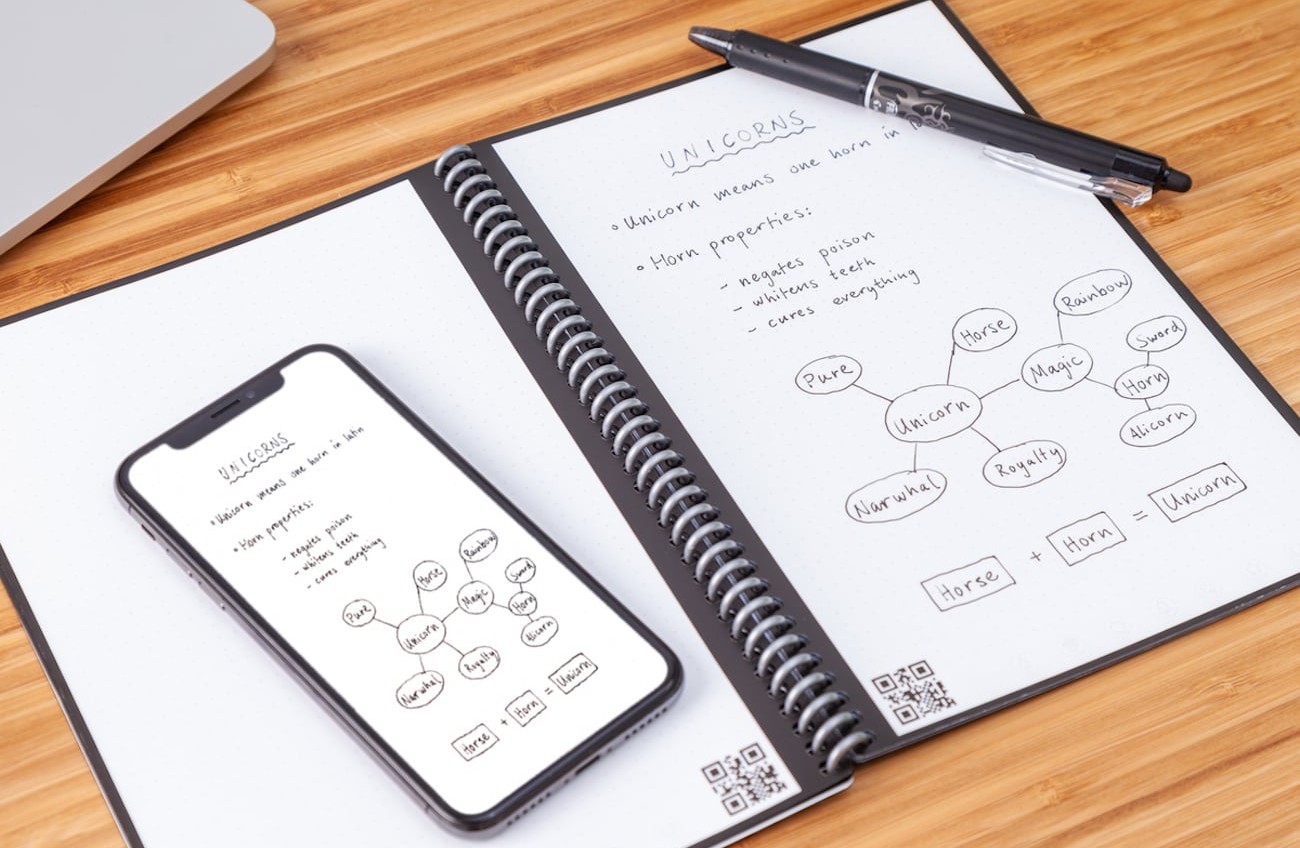 UNICORNS
∘ Unicorn means one horn in
∘ Horn properties:
- negates poison
- whitens teeth
- cures everything
Rainbow
Horse
Sword
Pure
Magic
Horn
Unicorn
Alicorn
Royalty
Narwhal
Horse + Horn = Unicorn
UNICORNS
∘ Unicorn means one horn in latin
∘ Horn properties:
- negates poison
- whitens teeth
- cures everything
Rainbow
Horse
Sword
Pure
Magic
Horn
Unicorn
Alicorn
Royalty
Narwhal
Horse + Horn = Unicorn